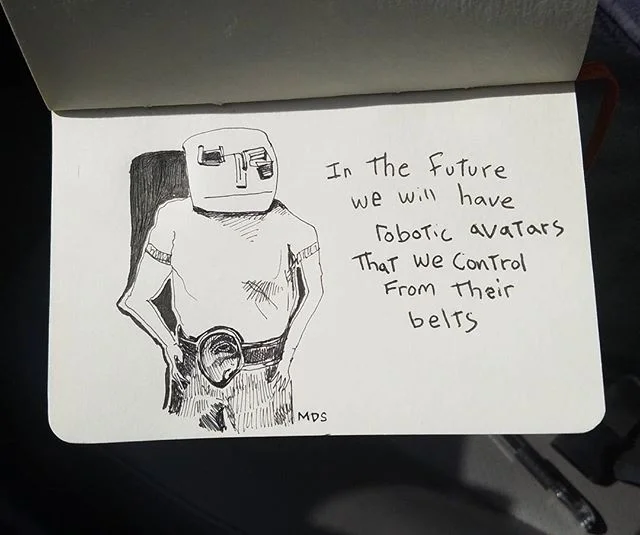 In The Future
we will have
robotic avatars
That we Control
From Their
belts
MDS